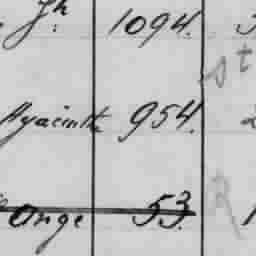 Jh 1094.
st
Hyacinthe 954.
Ange 53.
R